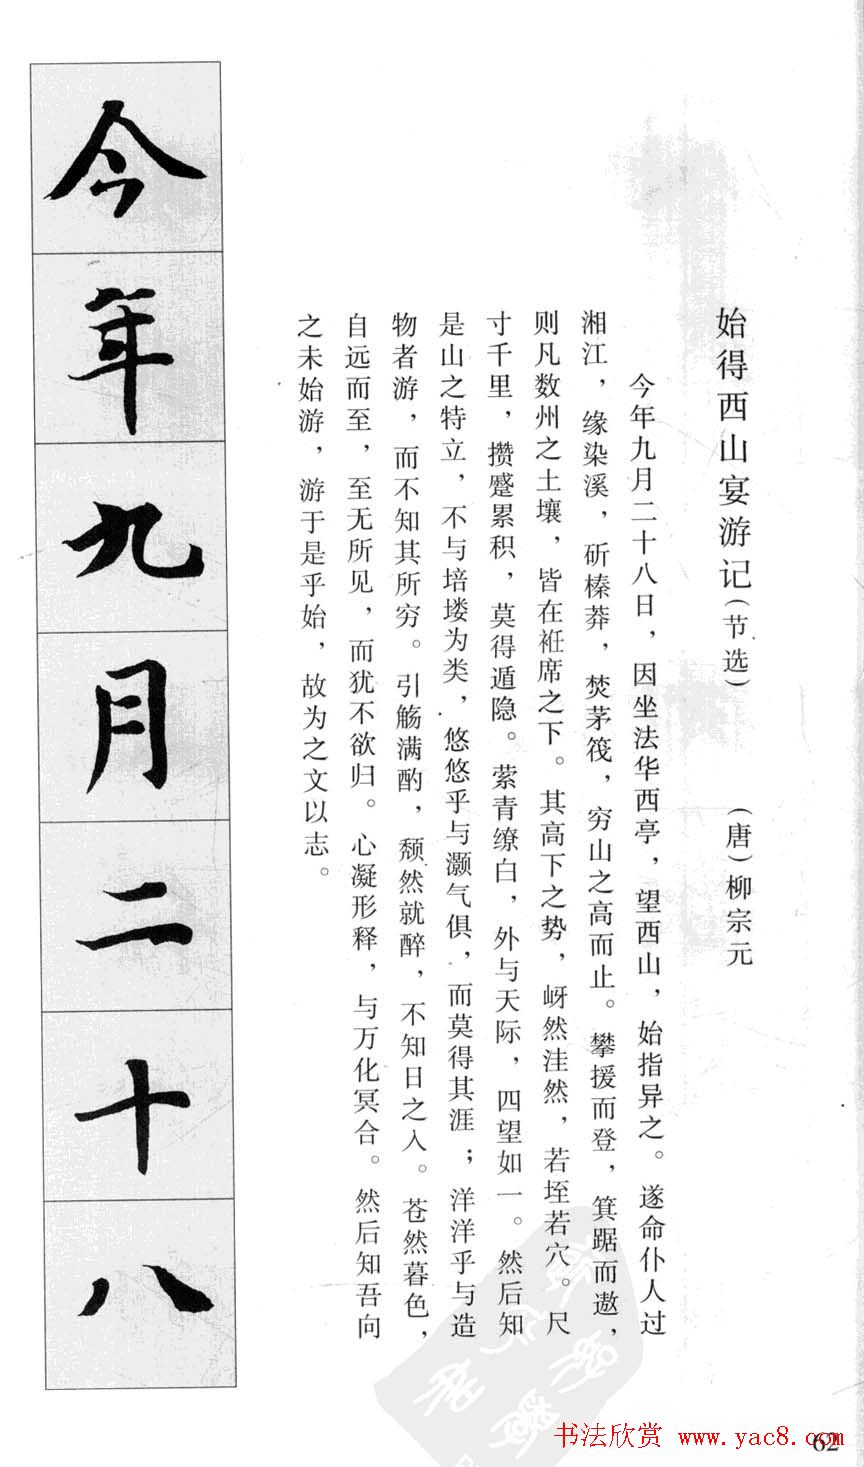 始得西山宴游记(节选) (唐)柳宗元
今年九月二十八日，因坐法华西亭，望西山，始指异之。遂命仆人过
湘江，缘染溪，斫榛莽，焚茅筏，穷山之高而止。攀援而登，箕踞而遨，
则凡数州之土壤，皆在衽席之下。其高下之势，岈然洼然，若垤若穴。尺
寸千里，攒蹙累积，莫得遁隐。萦青缭白，外与天际，四望如一。然后知
是山之特立，不与培塿为类，悠悠乎与灏气俱，而莫得其涯；洋洋乎与造
物者游，而不知其所穷。引觞满酌，颓然就醉，不知日之入。苍然暮色，
自远而至，至无所见，而犹不欲归。心凝形释，与万化冥合。然后知吾向
之未始游，游于是乎始，故为之文以志。
今年九月二十八
书法欣赏 www.yac8.com
62